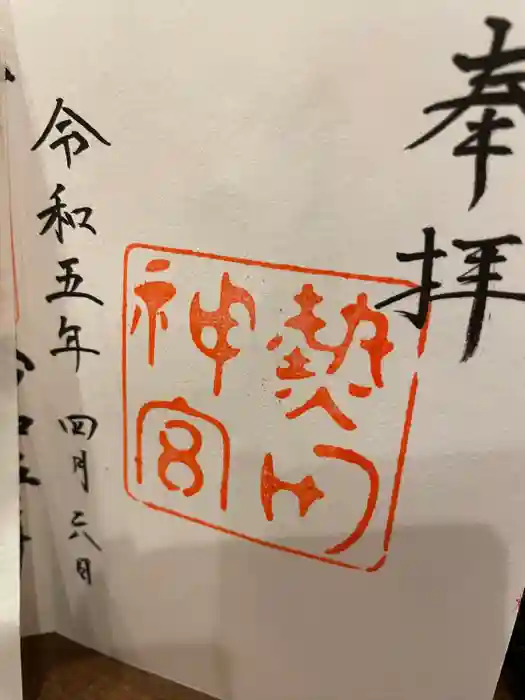 奉拝
熱田
神宮
令和五年 四月六日